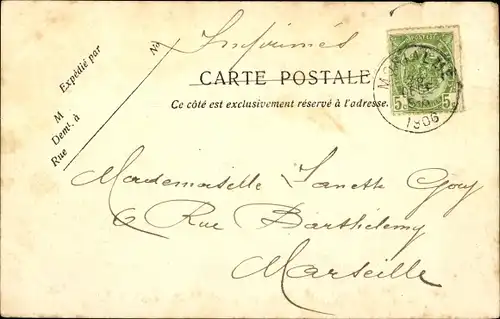 Imprimés
CARTE POSTALE
Ce côté est exclusivement réservé à l'adresse.
Expédié par
No
M
Demt. à
Rue
5 5
1906
Mademoiselle Janette Gouy
6 Rue Barthélemy
Marseille